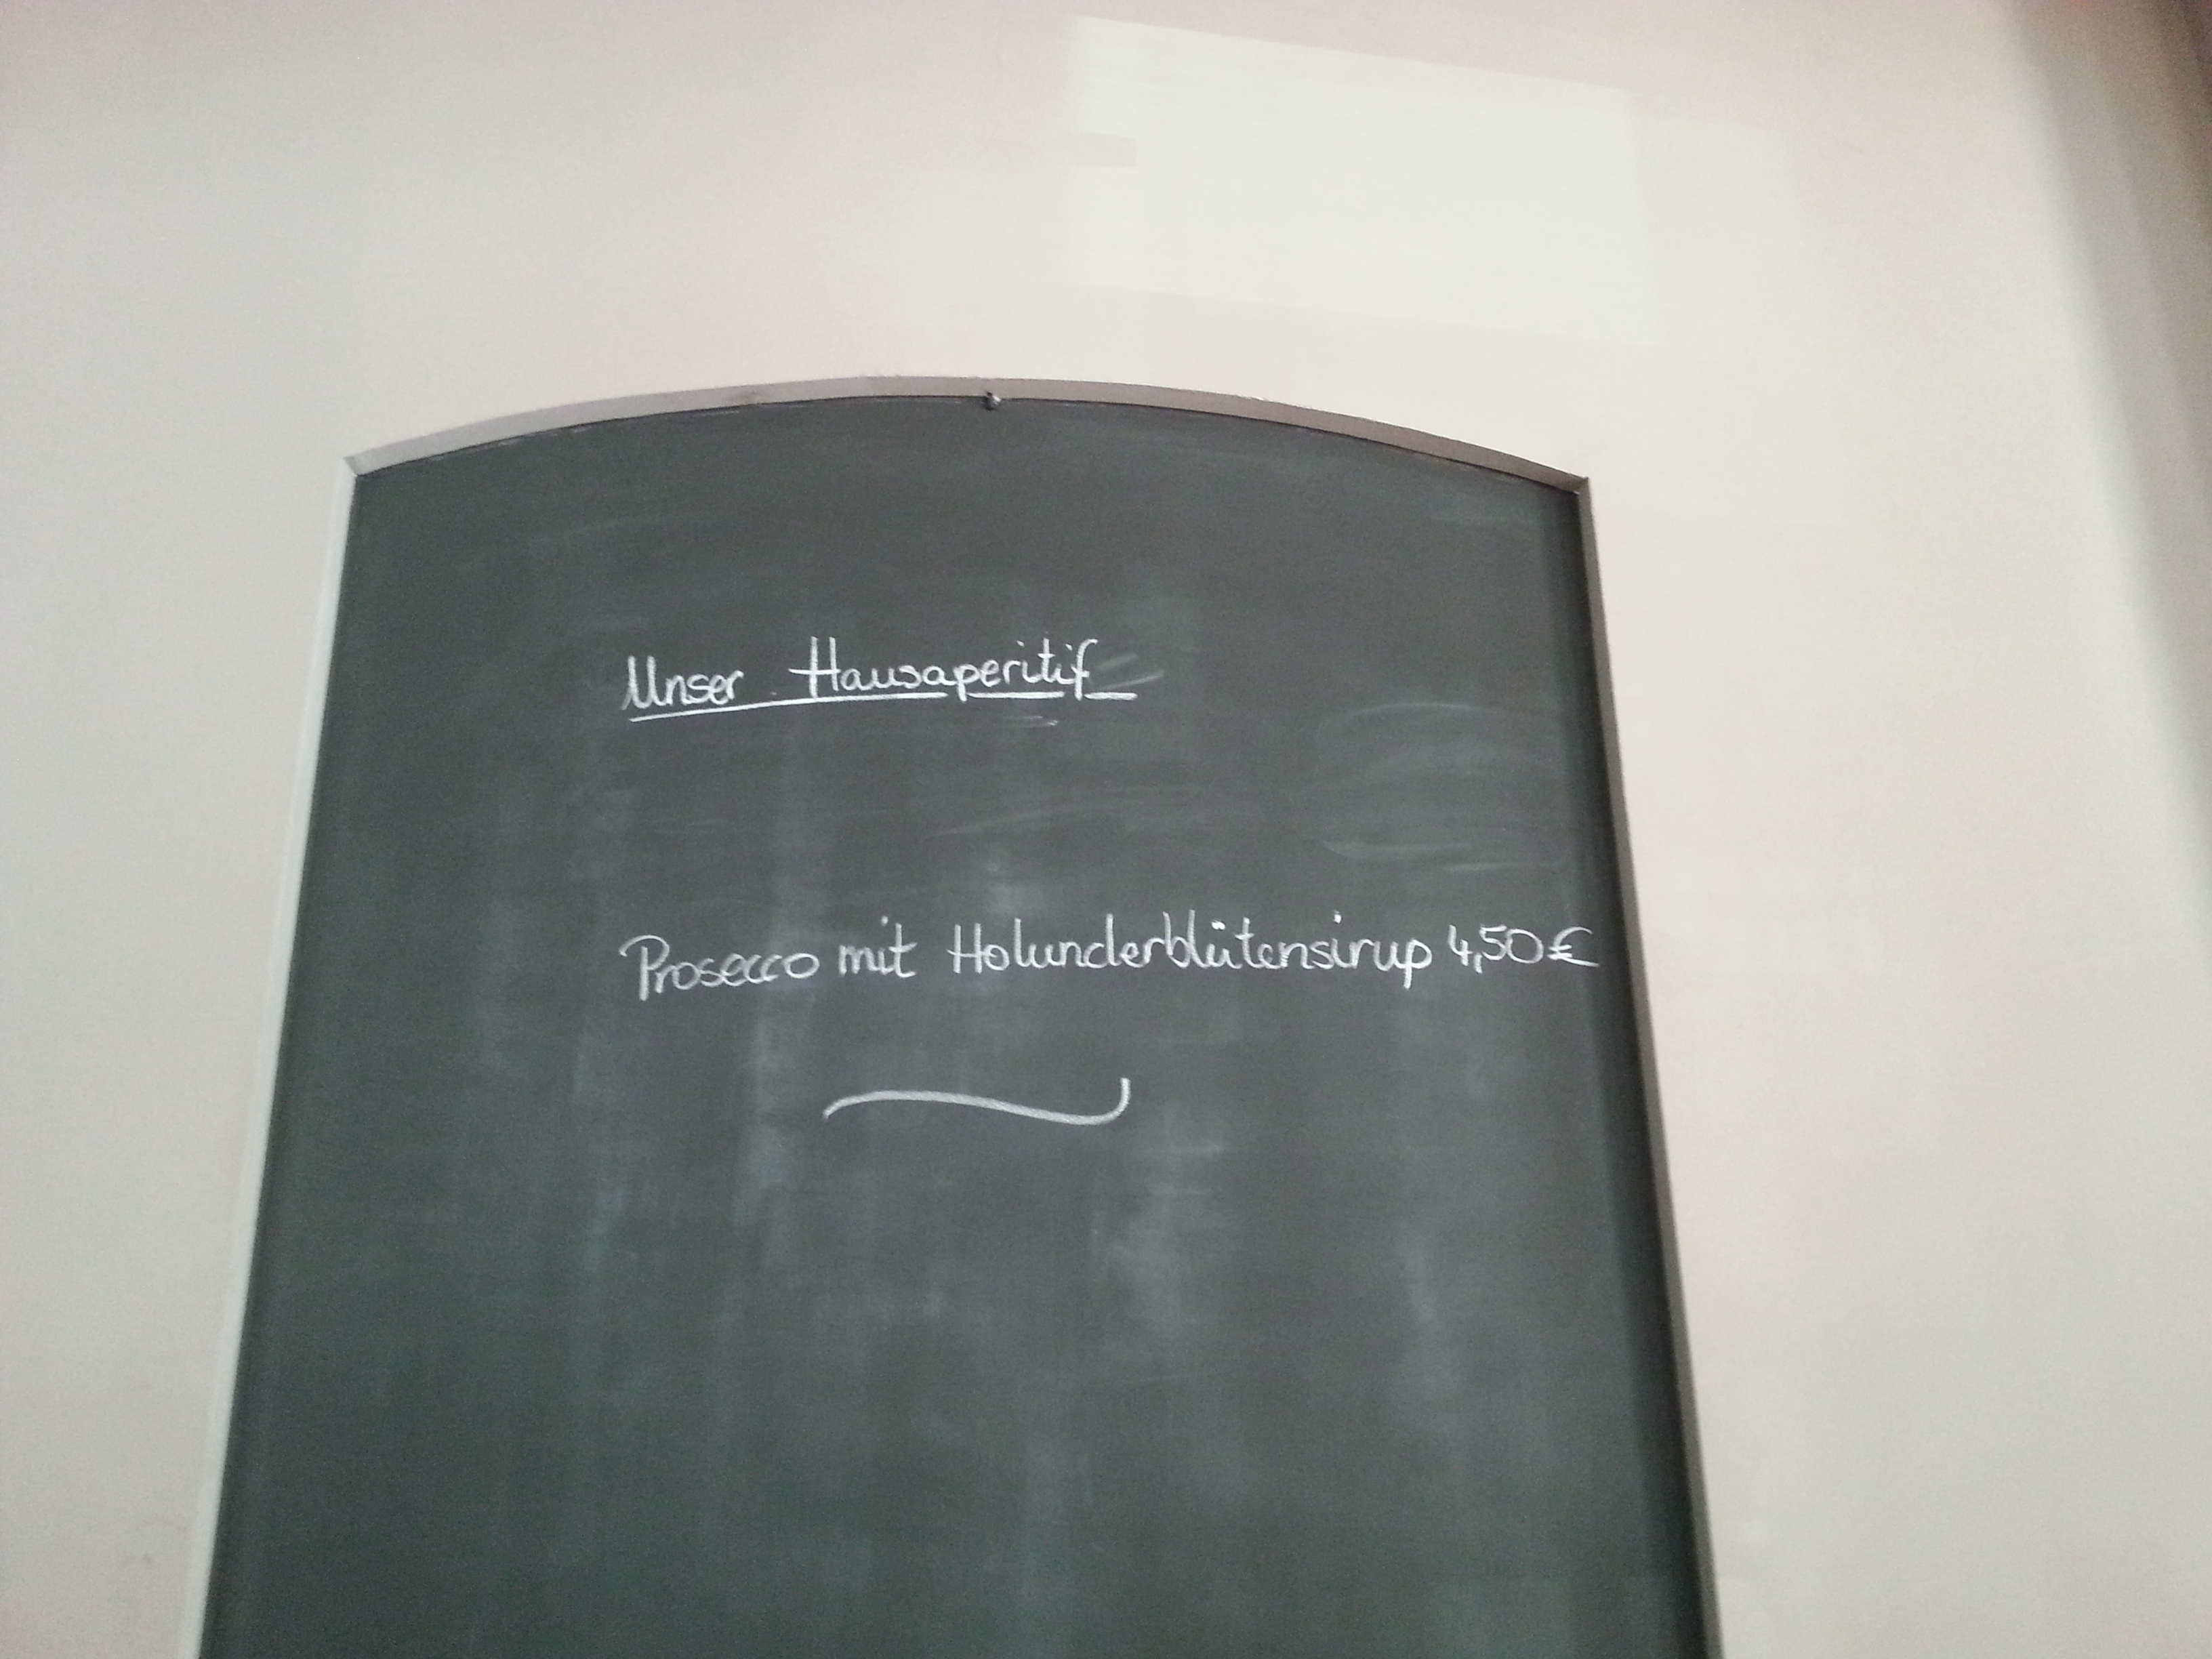 Unser Hausaperitif
Prosecco mit Holunderblütensirup 4,50€